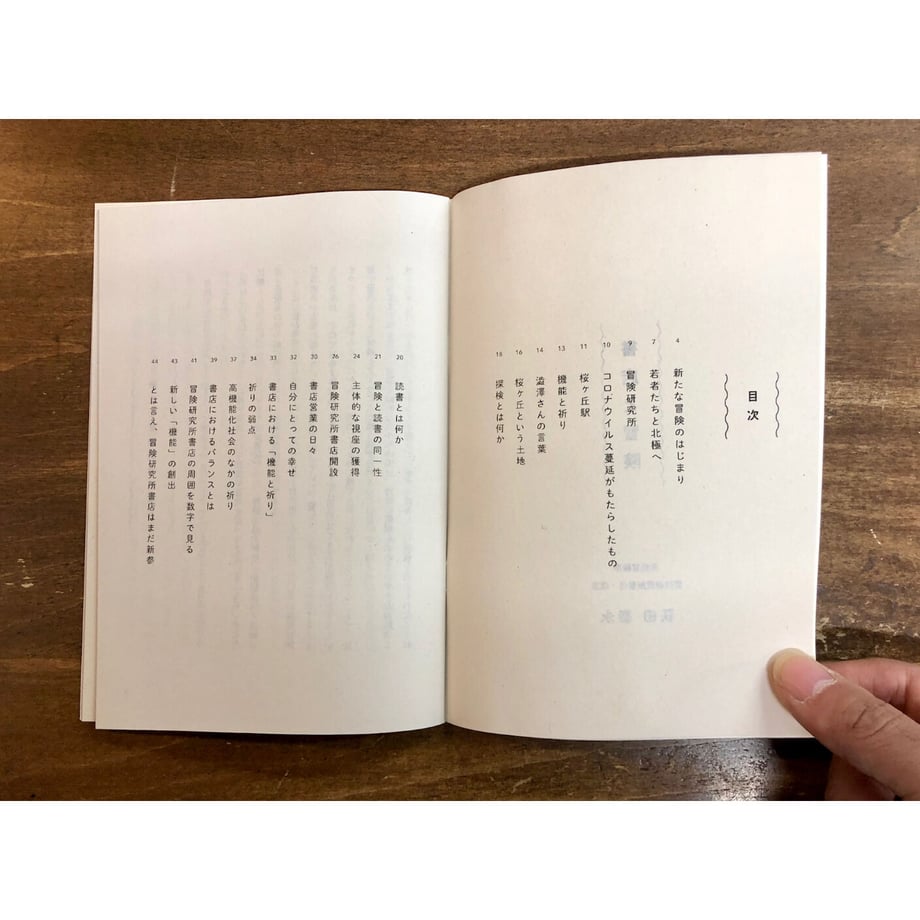 目次
4 新たな冒険のはじまり
7 若者たちと北極へ
9 冒険研究所
10 コロナウイルス蔓延がもたらしたもの
11 桜ヶ丘駅
13 機能と祈り
14 澁澤さんの言葉
16 桜ヶ丘という土地
18 探検とは何か
20 読書とは何か
21 冒険と読書の同一性
24 主体的な視座の獲得
26 冒険研究所書店開設
30 書店営業の日々
32 自分にとっての幸せ
33 書店における「機能と祈り」
34 祈りの弱点
37 高機能化社会のなかの祈り
39 書店におけるバランスとは
41 冒険研究所書店の周囲を数字で見る
43 新しい「機能」の創出
44 とは言え、冒険研究所書店はまだ新参